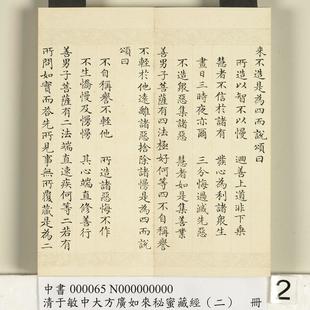 來不造是為四而說頌曰
所造以智不以慢　迴善上道非下乗
慧者不信於諸有　發心為利諸衆生
晝日三時夜亦爾　三分悔過滅先惡
不造般惡集諸惡　慧者如是集善業
善男子菩薩有四法極好何等四不自稱譽
不輕於他遠離諸惡捨除諸慢是為四而說
頌曰
不自稱譽不輕他　所造諸惡悔不作
不生憍慢及慢慢　其心端直修善行
善男子菩薩有二法端直速疾何等二若有
所問如實而荅先所見事無所覆藏是為二
中書 000065 N000000000
清于敏中大方廣如來秘蜜藏經（二）　冊
2